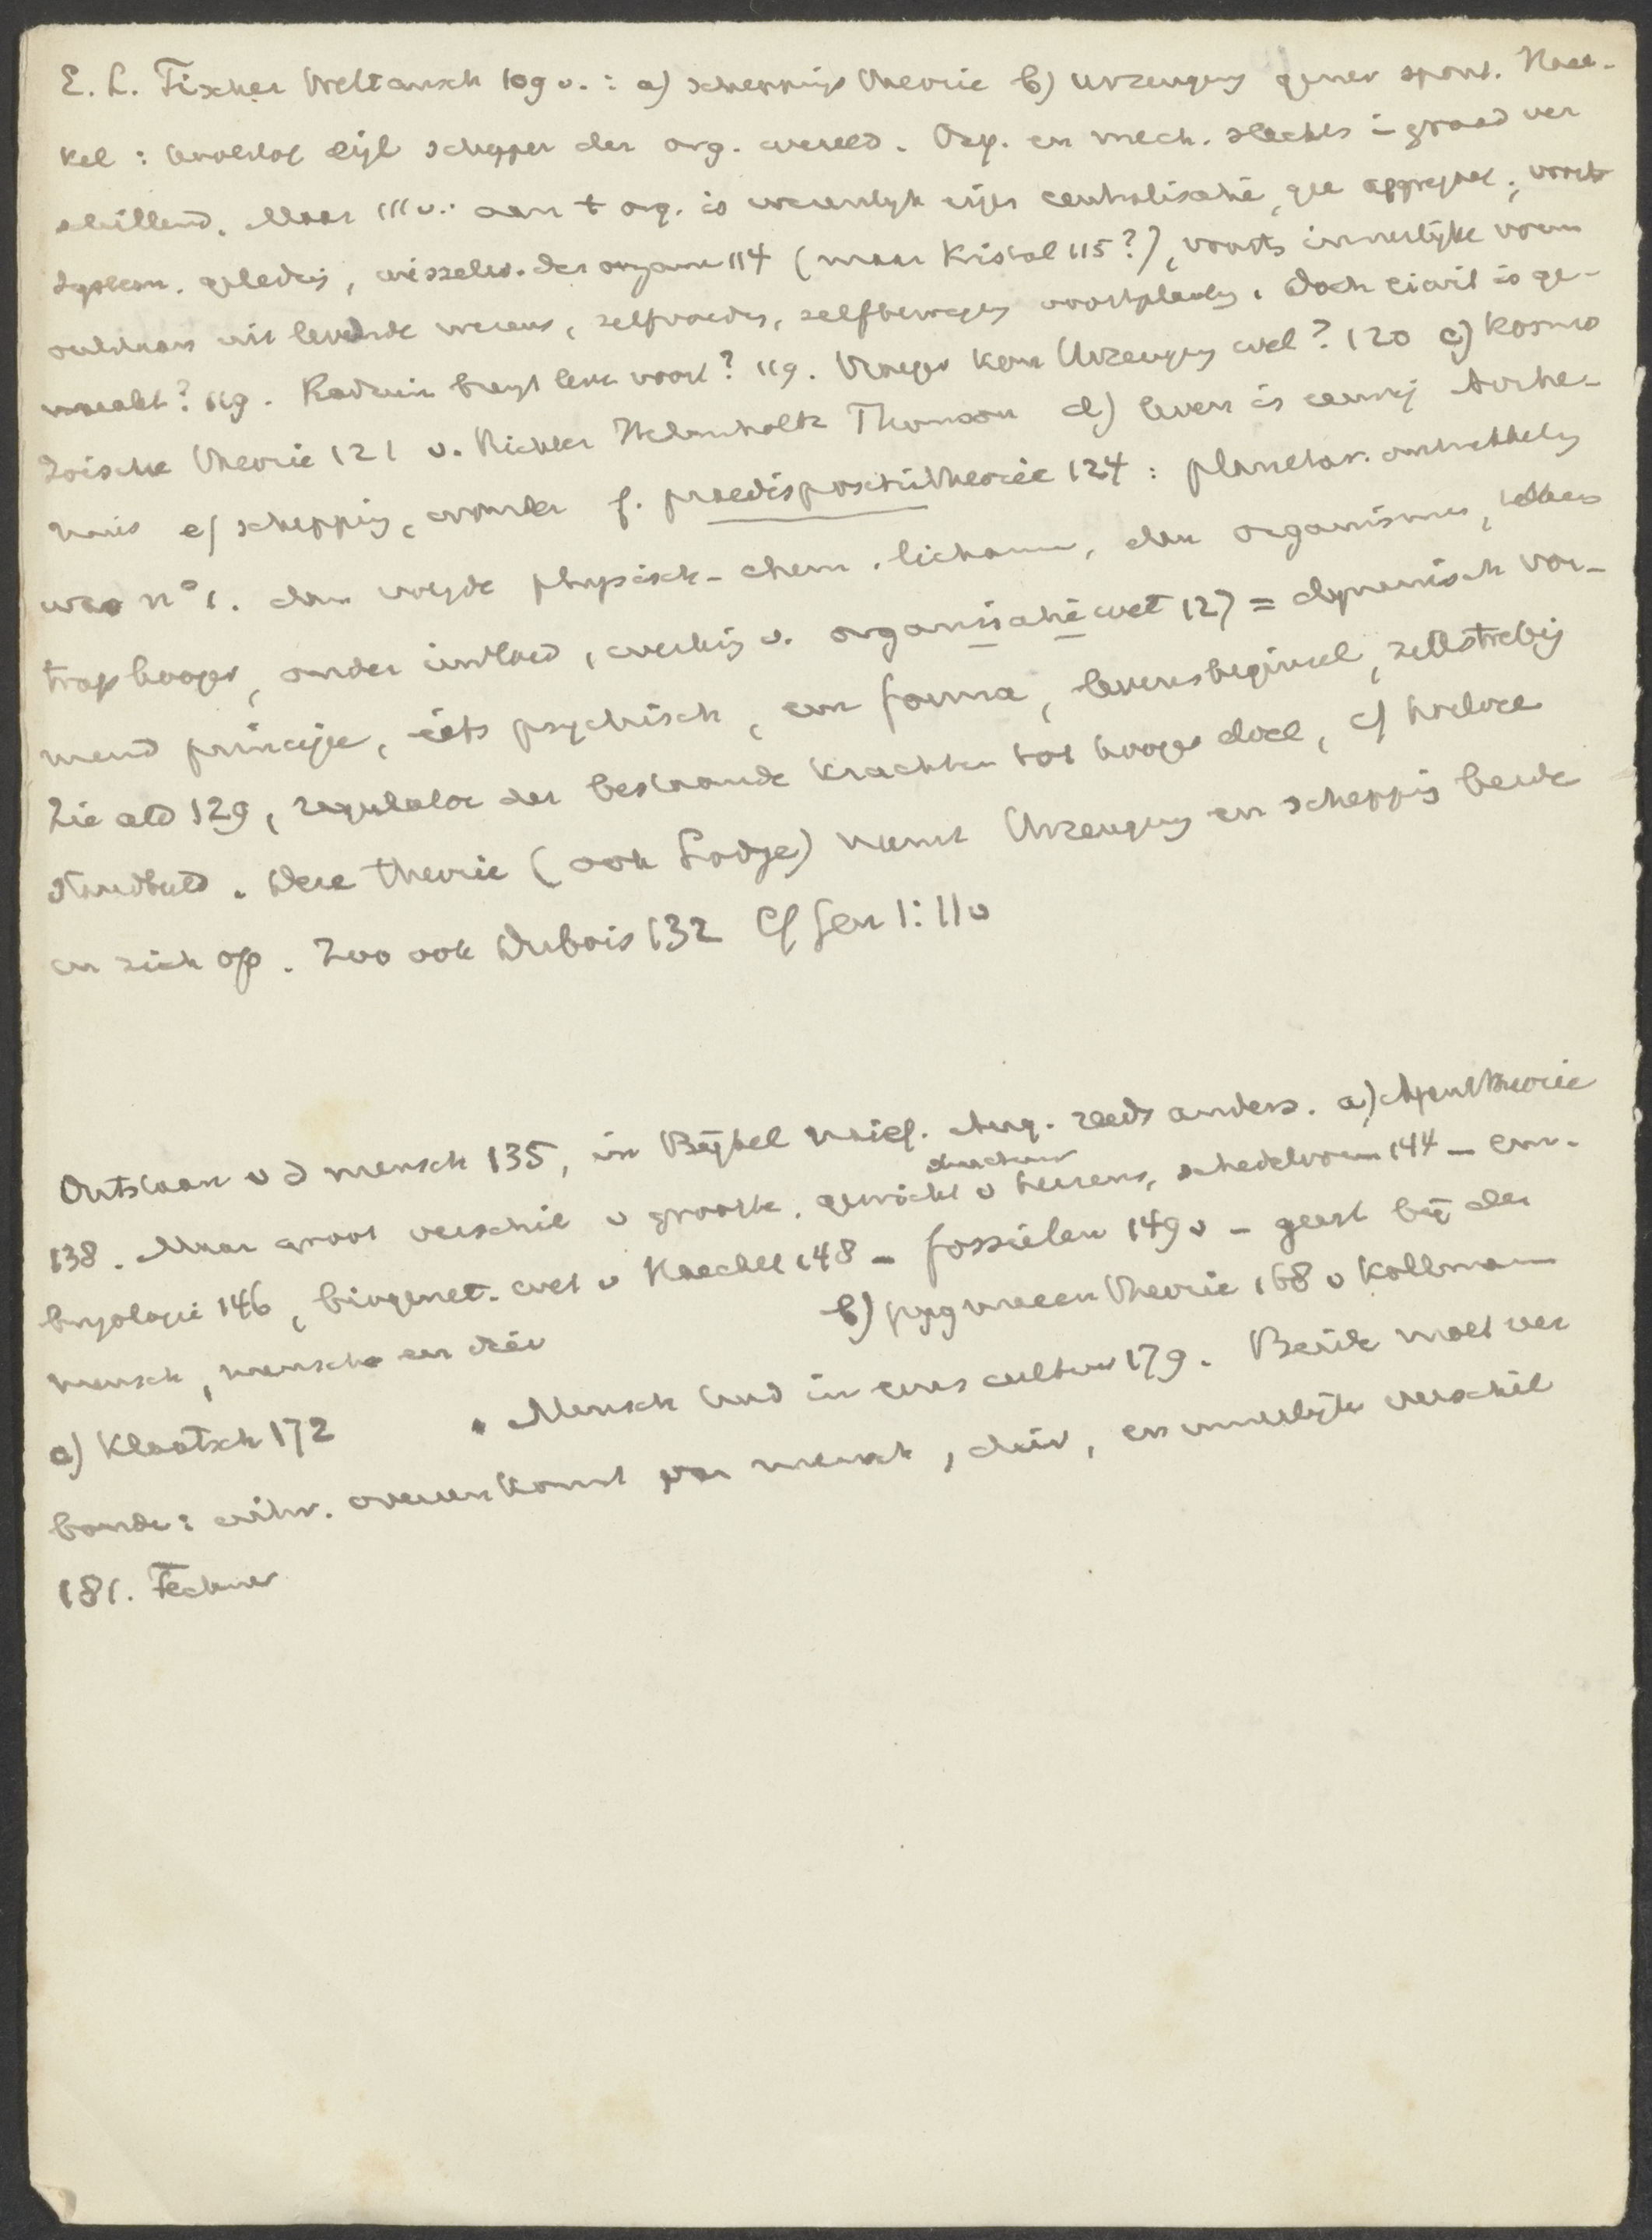 E. L. Fischer Weltansch 109 v. : a) scheppings theorie b) Urzeugung gener spont. Haec-
kel : koolstof eigl schepper der org. wereld. Org. en mech. slechts i graad ver
schillend. Maar 111 v.: aan t org. is wezenlijk eigen centralisatie, geen aggregaat; voorts
system. geleding, wisselw. der organen 114 (maar kristal 115?), voorts innerlijke vorm
ontstaan uit levende wezens, zelfvoeding, zelfbeweging voortplanting. Doch eiwit is ge-
maakt? 119. Radium brengt leven voort? 119. Vroeger kon Urzeugung wel? 120 c) Kosmo
zoische theorie 121 v. Richter Helmholtz Thomson d) leven is eeuwig
e) schepping, wonder f. praedispositietheorie 124 : planetar. ontwikkeling
was n° 1. dan volgde physisch-chem. lichamen, dan organismen,
trap hooger, onder invloed, werking v. organisatiewet 127 = dynamisch vor-
mend principe, iets psychisch, een forma, levensbeginsel, zelfstrebig
Zie ald 129, regulator der bestaande krachten tot hooger doel, cf
. Deze theorie (ook Lodge) neemt Urzeugung en schepping beide
in zich op. Zoo ook Dubois 132 Cf Gen 1:11v
Ontstaan v d mensch 135, in Bijbel naief. Aug. reeds anders. a) Apentheorie
138. Maar groot verschil v grootte, gewicht v hersens, schedelvorm 144 – em-
bryologie 146, biogenet. wet v Haeckel 148 – fossielen 149 v – geest bij den
mensch, mensch en dier b) pygmaeentheorie 168 v Kollmann
c) Klaatsch 172 . Mensch vind in eens cultuur 179. Beide moet ver
bonden: uitw. overeenkomst van mensch, dier, en innerlijke verschil
181. Fechner